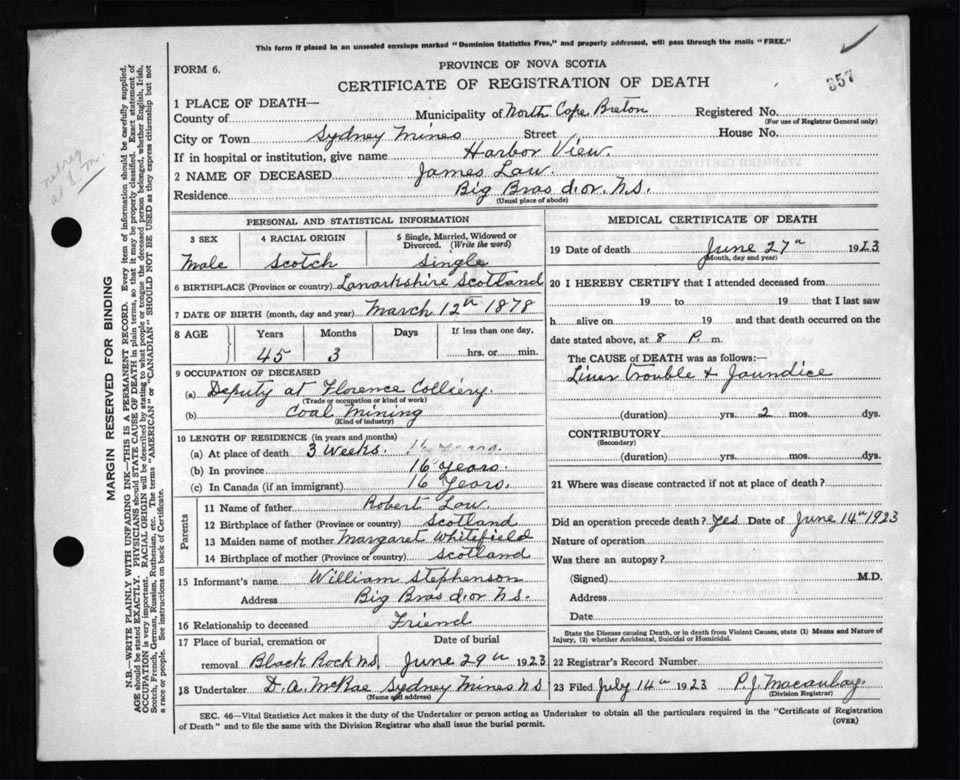 This form if placed in an unsealed envelope marked "Dominion Statistics Free," and properly addressed, will pass through the mails "FREE."
357
FORM 6.
PROVINCE OF NOVA SCOTIA
CERTIFICATE OF REGISTRATION OF DEATH
1 PLACE OF DEATH—
County of Municipality of North Cape Breton Registered No.
(For use of Registrar General only)
City or Town Sydney Mines Street House No.
If in hospital or institution, give name Harbor View.
2 NAME OF DECEASED James Law.
Residence Big Bras d.or. N.S.
(Usual place of abode)
PERSONAL AND STATISTICAL INFORMATION
3 SEX 4 RACIAL ORIGIN 5 Single, Married, Widowed or Divorced. (Write the word)
Male Scotch Single
6 BIRTHPLACE (Province or country) Lanarkshire Scotland
7 DATE OF BIRTH (month, day and year) March 12th 1878
8 AGE Years Months Days If less than one day,
45 3 hrs. or min.
9 OCCUPATION OF DECEASED
(a) Deputy at Florence Colliery.
(Trade or occupation or kind of work)
(b) Coal Mining
(Kind of industry)
10 LENGTH OF RESIDENCE (in years and months)
(a) At place of death 3 Weeks. 16 Years.
(b) In province 16 Years.
(c) In Canada (if an immigrant) 16 Years.
Parents
11 Name of father Robert Law
12 Birthplace of father (Province or country) Scotland
13 Maiden name of mother Margaret Whitefield
14 Birthplace of mother (Province or country) Scotland
15 Informant's name William Stephenson
Address Big Bras d.or N.S.
16 Relationship to deceased Friend
17 Place of burial, cremation or Date of burial
removal Black Rock N.S. June 29th 1923
18 Undertaker D. A. McRae Sydney Mines N.S
(Name and address)
MEDICAL CERTIFICATE OF DEATH
19 Date of death June 27th 1923
(Month, day and year)
20 I HEREBY CERTIFY that I attended deceased from
19 to 19 that I last saw
h alive on 19 and that death occurred on the
date stated above, at 8 P. m.
The CAUSE of DEATH was as follows:—
Liver Trouble & Jaundice
(duration) yrs. 2 mos. dys.
CONTRIBUTORY
(Secondary)
(duration) yrs. mos. dys.
21 Where was disease contracted if not at place of death?
Did an operation precede death? Yes Date of June 14th 1923
Nature of operation
Was there an autopsy?
(Signed) M.D.
Address
Date
State the Disease causing Death, or in death from Violent Causes, state (1) Means and Nature of Injury, (2) whether Accidental, Suicidal or Homicidal.
22 Registrar's Record Number
23 Filed July 14th 1923 P. J. Macaulay.
(Division Registrar)
SEC. 46—Vital Statistics Act makes it the duty of the Undertaker or person acting as Undertaker to obtain all the particulars required in the "Certificate of Registration
of Death" and to file the same with the Division Registrar who shall issue the burial permit.
(OVER)
MARGIN RESERVED FOR BINDING
N.B.—WRITE PLAINLY WITH UNFADING INK—THIS IS A PERMANENT RECORD. Every item of information should be carefully supplied.
AGE should be stated EXACTLY. PHYSICIANS should STATE CAUSE OF DEATH in plain terms, so that it may be properly classified. Exact statement of
OCCUPATION is very important. RACIAL ORIGIN will be described by stating to what people or tongue the deceased person belonged, whether English, Irish,
Scotch, French, German, Russian, Ruthenian, etc. The terms "AMERICAN" or "CANADIAN" SHOULD NOT BE USED as they express citizenship but not
a race or people. See instructions on back of Certificate.